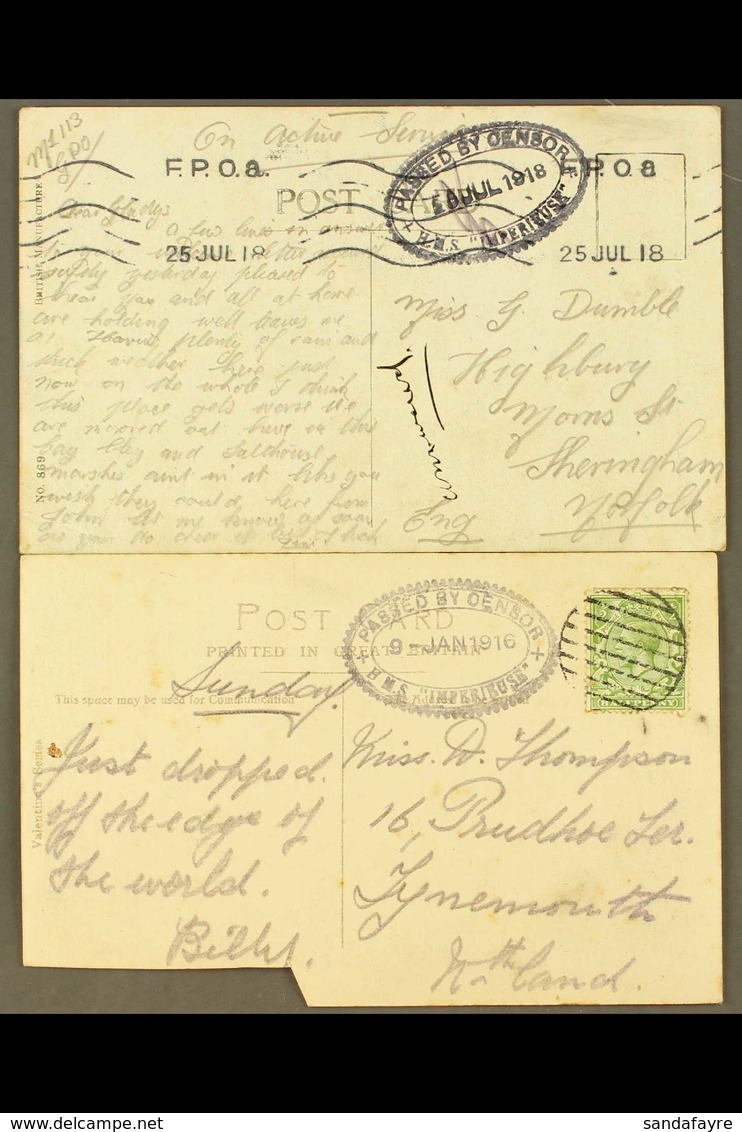 MS 113
GPO/
On Active Service
F.P.O.a.
25 JUL 18
PASSED BY CENSOR
JUL 1918
H.M.S. "IMPERIEUSE"
F.P.O.a
25 JUL 18
POST
BRITISH MANUFACTURE
No. 869
Dear Gladys
a few lines in answer
to your letter
safely yesterday pleased to
hear you and all at home
are holding well leaves me
Having plenty of rain and
thick weather here just
now on the whole I think
this place gets worse we
are moored out here in this
bay Cley and Salthouse
marshes aint in it
wish they could here from
John let me know as soon
as you do
Miss G Dumble
Highbury
Morris St
Sheringham
Norfolk
Eng
POST CARD
PRINTED IN GREAT BRITAIN
This space may be used for Communication
Valentine's Series
PASSED BY CENSOR
9-JAN 1916
H.M.S. "IMPERIEUSE"
HALFPENNY
Sunday.
Just dropped.
off the edge of
the world.
Billy.
Miss. D. Thompson
16, Prudhoe Ter.
Tynemouth
Nthland.
delcampe.net
sandafayre